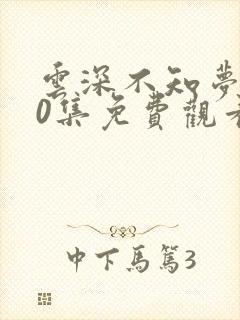 雲深不知夢
0集免費觀看
中下馬篤3